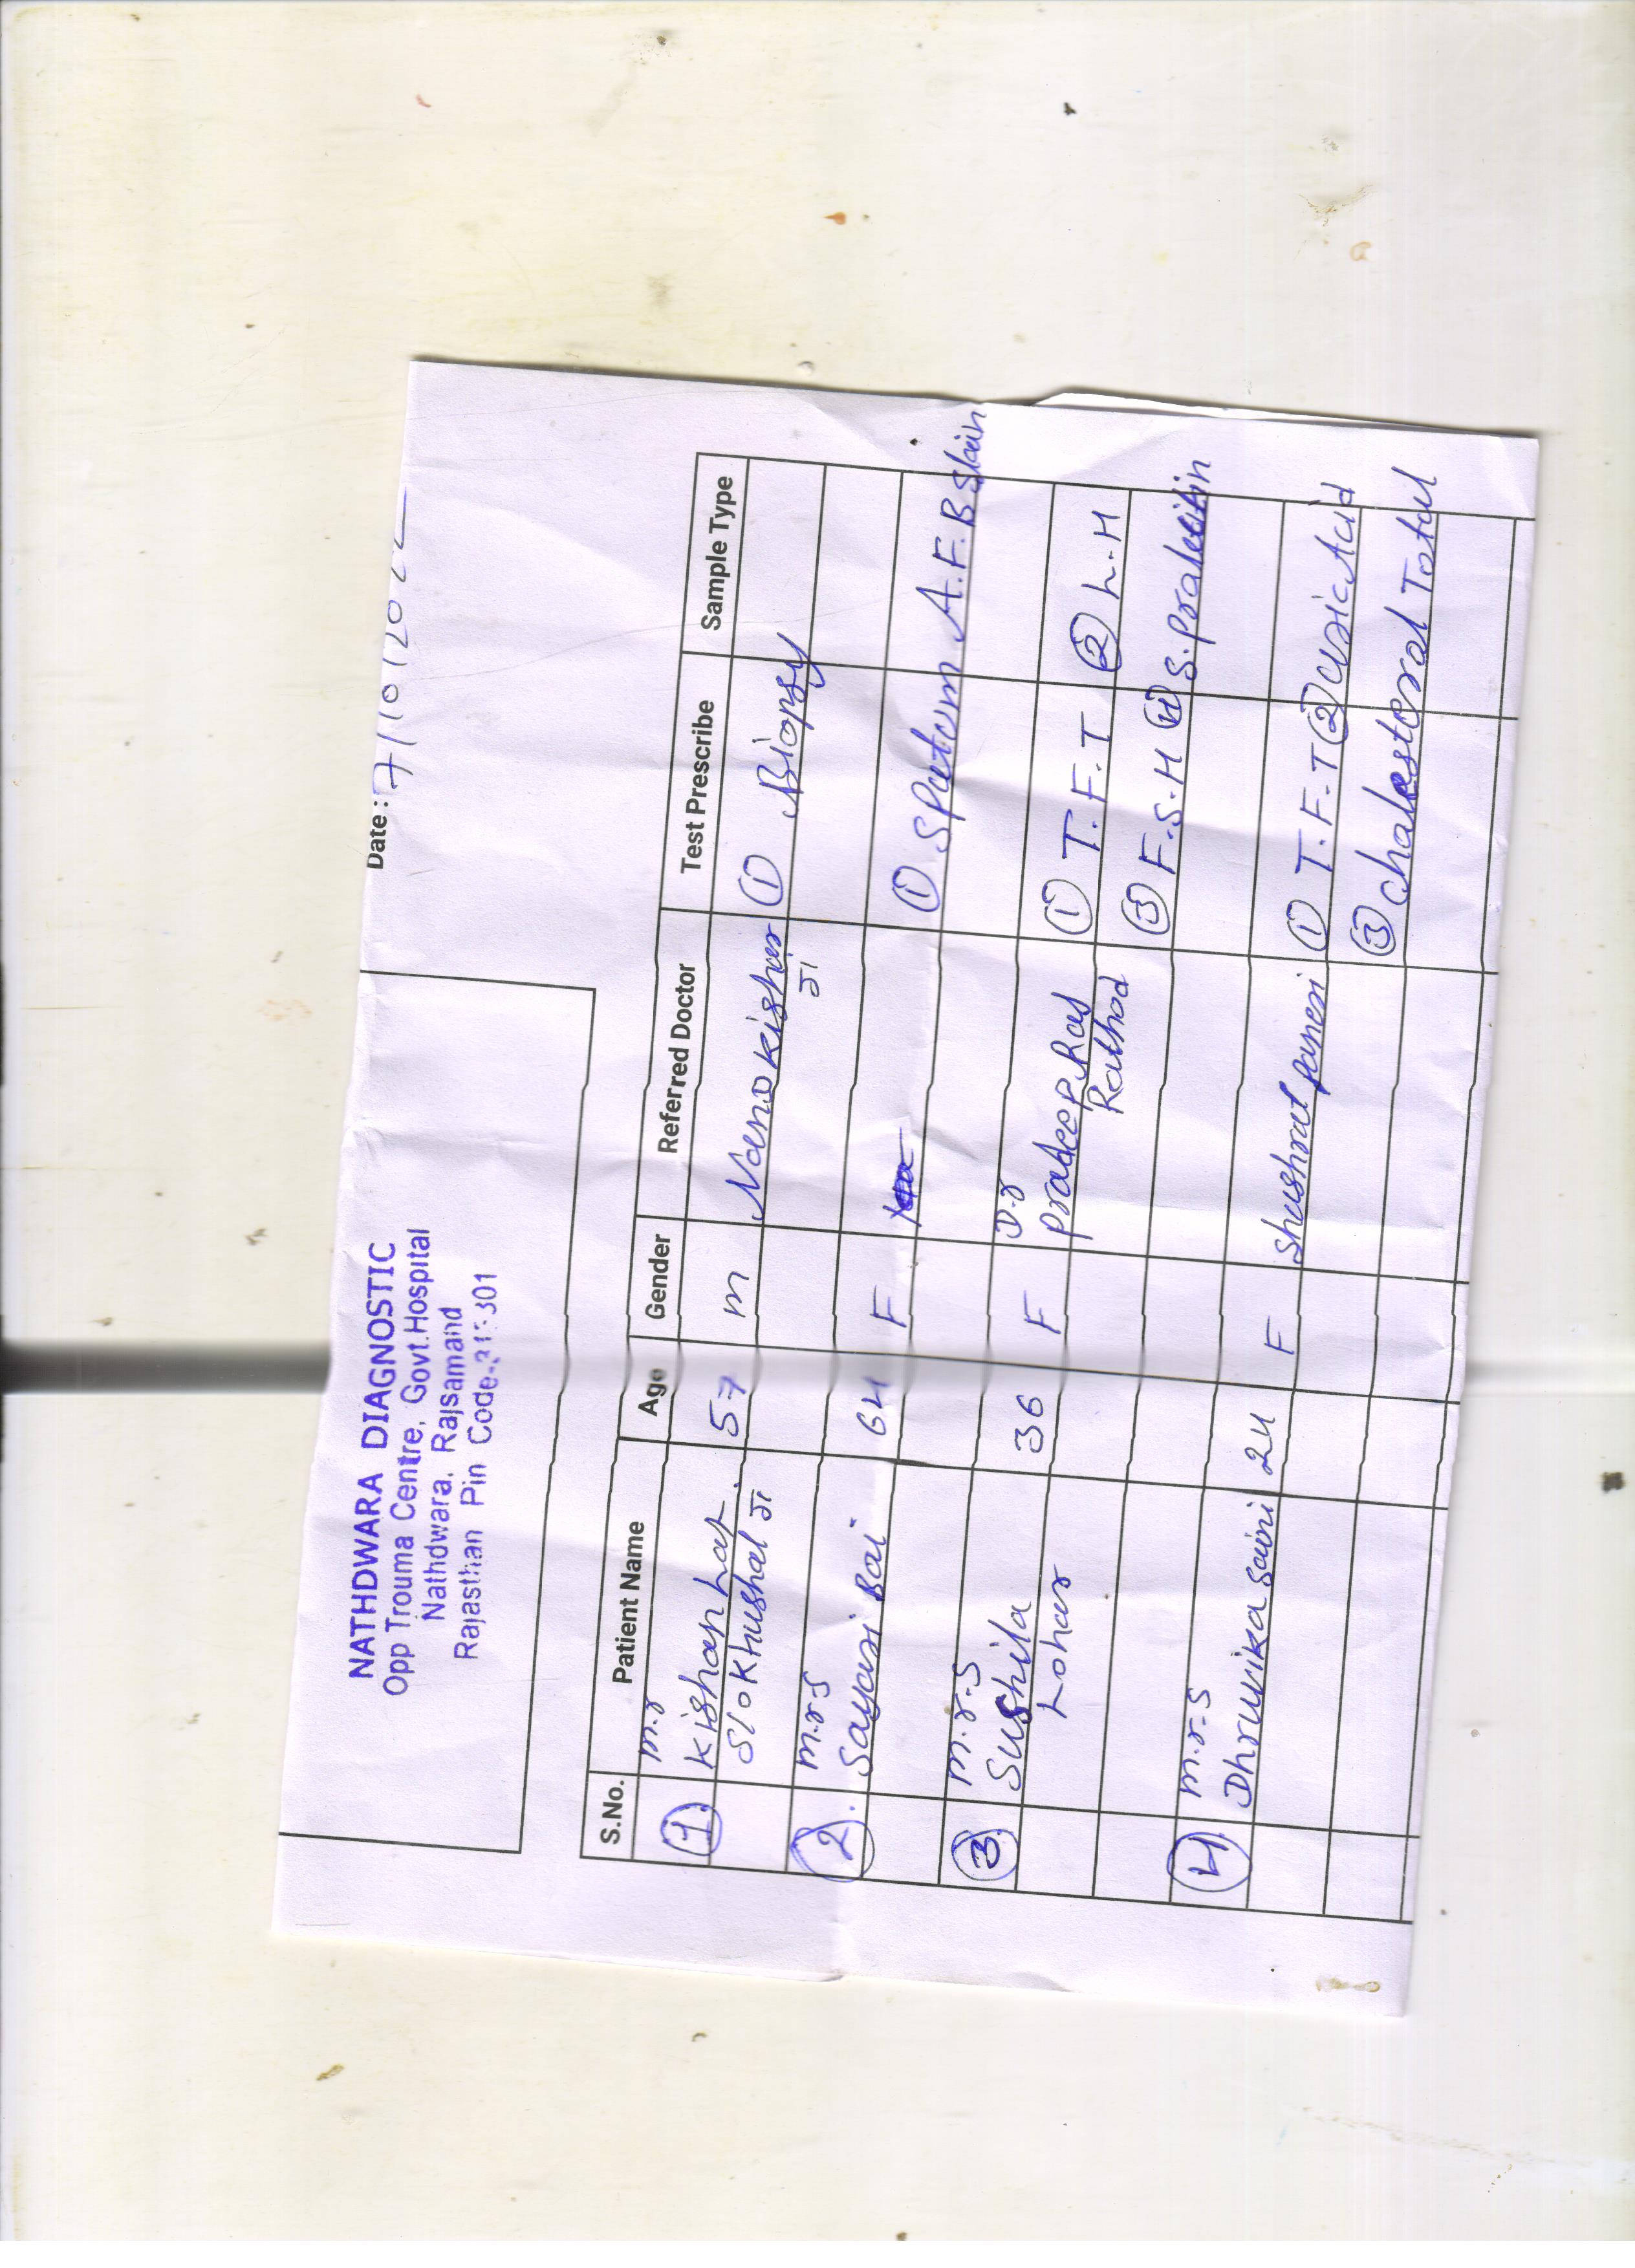 Date: 7/10/202
NATHDWARA DIAGNOSTIC
Opp Trouma Centre, Govt.Hospital
Nathdwara, Rajsamand
Rajasthan Pin Code- 301
S.No. Patient Name Age Gender Referred Doctor Test Prescribe Sample Type
① m.r
Kishan Lal 57 m Nandkishor ① Biopsy
S/o Khushal जी जी
②. m.r.s
Sayari Bai 64 F ① Sputum A.F.B Stain
③ m.r.s D.r
Sushila 36 F Pradeep Raj ① T.F.T ② L.H
Lohar Rathod ③ F.S.H ④ S.Prolectin
④ m.r.s
Dhruvika Saini 24 F Shushrat ① T.F.T ② Uric Acid
③ Cholesterol Total